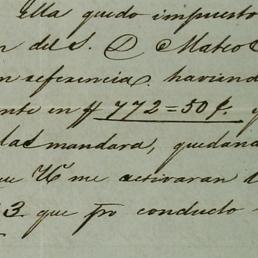 Ella quedo impuesto
del S. D Mateo
referencia. haviend
ente en ff 772=50 f. y
las mandara, quedan
que U me activaran
3. que por conducto